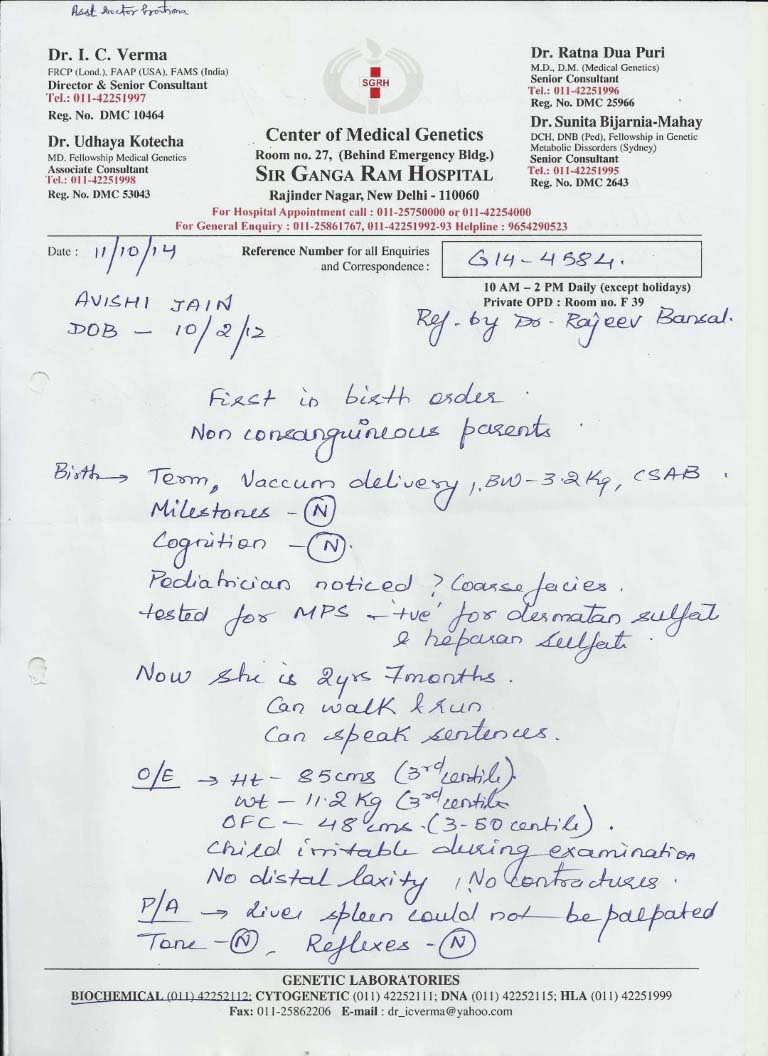 Asst Doctor
Dr. I. C. Verma
FRCP (Lond.), FAAP (USA), FAMS (India)
Director & Senior Consultant
Tel.: 011-42251997
Reg. No. DMC 10464
Dr. Udhaya Kotecha
MD, Fellowship Medical Genetics
Associate Consultant
Tel.: 011-42251998
Reg. No. DMC 53043
SGRH
Center of Medical Genetics
Room no. 27, (Behind Emergency Bldg.)
SIR GANGA RAM HOSPITAL
Rajinder Nagar, New Delhi - 110060
For Hospital Appointment call : 011-25750000 or 011-42254000
For General Enquiry : 011-25861767, 011-42251992-93 Helpline : 9654290523
Dr. Ratna Dua Puri
M.D., D.M. (Medical Genetics)
Senior Consultant
Tel.: 011-42251996
Reg. No. DMC 25966
Dr. Sunita Bijarnia-Mahay
DCH, DNB (Ped), Fellowship in Genetic
Metabolic Dissorders (Sydney)
Senior Consultant
Tel.: 011-42251995
Reg. No. DMC 2643
Date : 11/10/14
Reference Number for all Enquiries
and Correspondence :
G14-4584.
10 AM – 2 PM Daily (except holidays)
Private OPD : Room no. F 39
AVISHI JAIN
DOB - 10/2/12
Ref. by Dr. Rajeev Bansal.
First in birth order.
Non consanguineous parents.
Birth → Term, Vaccum delivery, BW - 3.2 Kg, CSAB.
Milestones - (N)
Cognition - (N).
Pediatrician noticed ? Coarse facies.
tested for MPS - '+ve' for dermatan sulfat
& heparan sulfat.
Now she is 2yrs 7months.
Can walk & run
Can speak sentences.
O/E → Ht - 85cms (3rd centile).
Wt - 11.2 Kg (3rd centile
OFC - 48 cms. (3-50 centile).
Child irritable during examination
No distal laxity, No contractures.
P/A → Liver spleen could not be palpated
Tone - (N), Reflexes - (N)
GENETIC LABORATORIES
BIOCHEMICAL (011) 42252112; CYTOGENETIC (011) 42252111; DNA (011) 42252115; HLA (011) 42251999
Fax: 011-25862206 E-mail : dr_icverma@yahoo.com